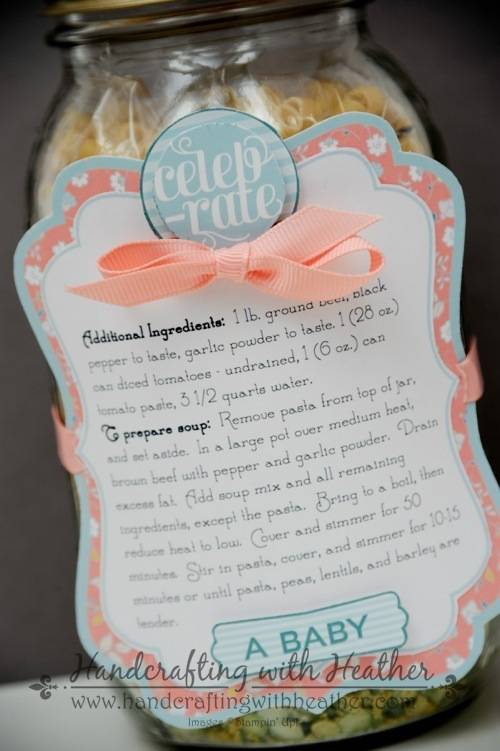 celeb
-rate
Additional Ingredients: 1 lb. ground beef, black
pepper to taste, garlic powder to taste. 1 (28 oz.)
can diced tomatoes - undrained, 1 (6 oz.) can
tomato paste, 3 1/2 quarts water.
To prepare soup: Remove pasta from top of jar,
and set aside. In a large pot over medium heat,
brown beef with pepper and garlic powder. Drain
excess fat. Add soup mix and all remaining
ingredients, except the pasta. Bring to a boil, then
reduce heat to low. Cover and simmer for 50
minutes. Stir in pasta, cover, and simmer for 10-15
minutes or until pasta, peas, lentils, and barley are
tender.
A BABY
Handcrafting with Heather
www.handcraftingwithheather.com
Images © Stampin' Up!